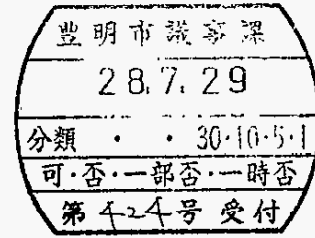 豊明市議事課
28.7.29
分類 ・ ・ 30・10・5・1
可・否・一部否・一時否
第424号 受付